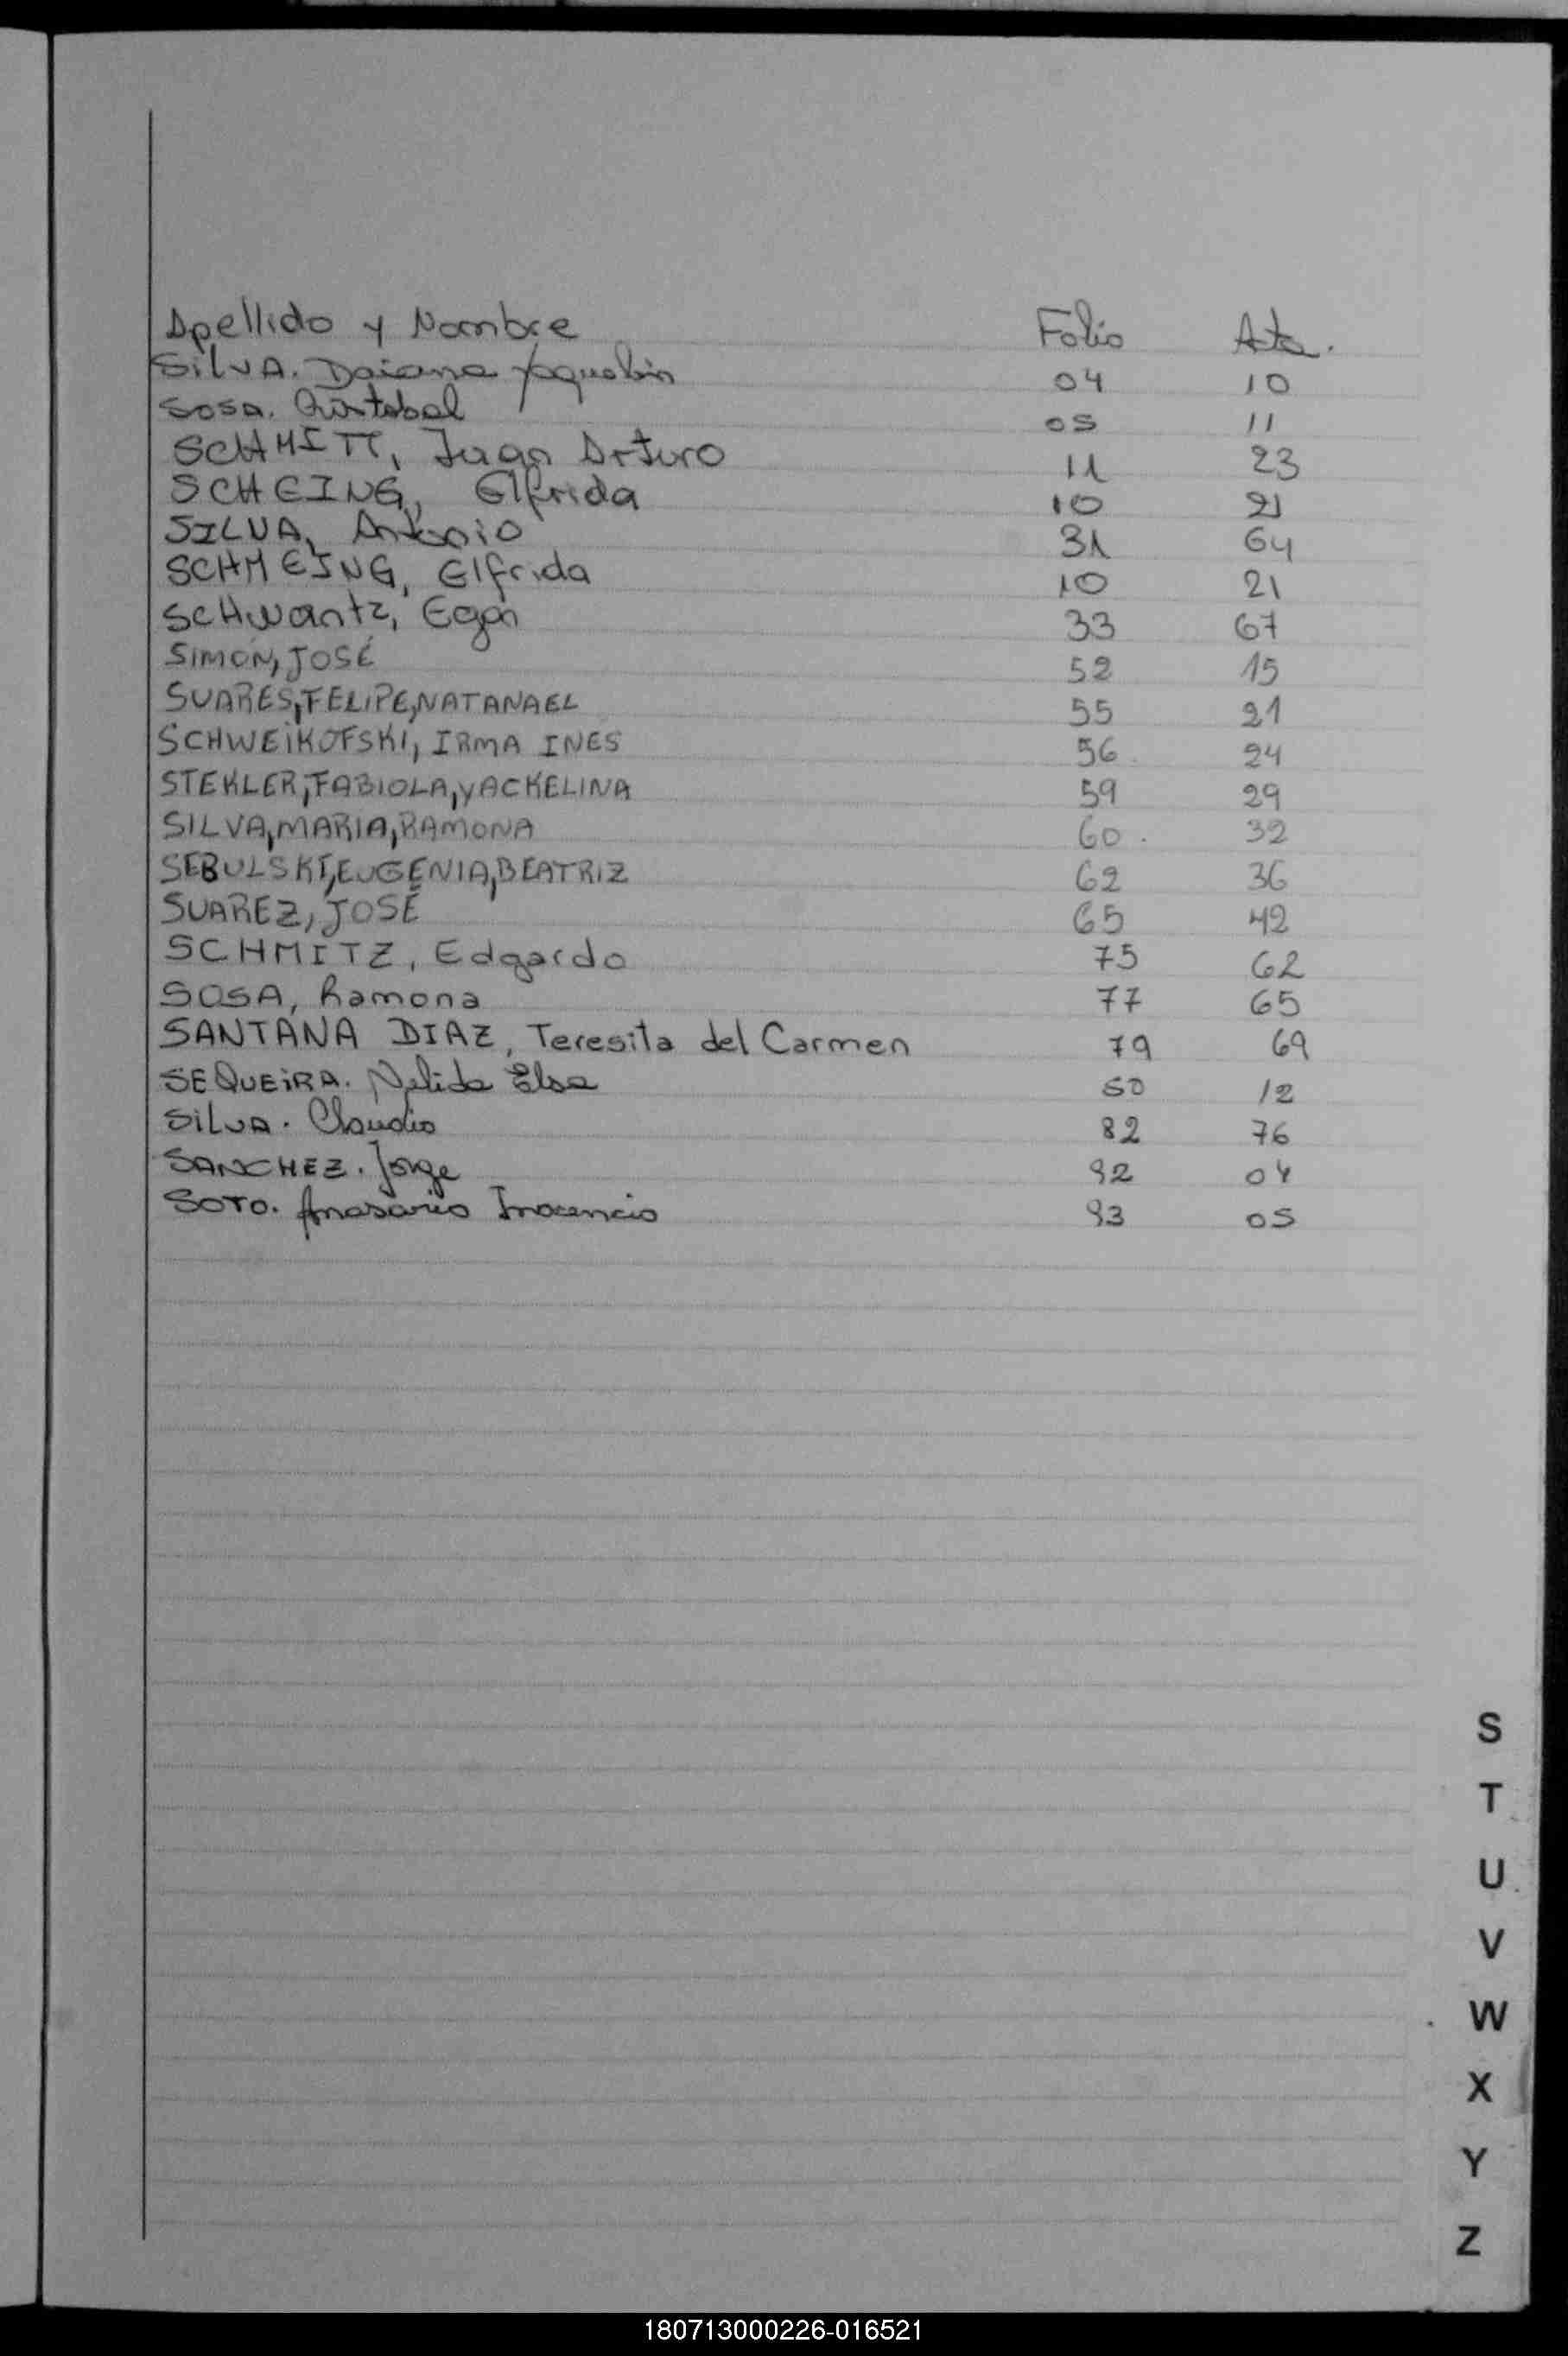 Apellido y Nombre Folio Acta.
SilVA. Daiana Yaquelin 04 10
Sosa. Cristobal 05 11
SCHMITT, Juan Arturo 11 23
SCHEING, Elfrida 10 21
SILVA, Antonio 31 64
SCHMEING, Elfrida 10 21
SCHwantz, Egon 33 67
SIMON, JOSÉ 52 15
SUARES, FELIPE, NATANAEL 55 21
SCHWEIKOFSKI, IRMA INES 56 24
STEKLER, FABIOLA, YACKELINA 59 29
SILVA, MARIA, RAMONA 60. 32
SEBULSKI, EUGENIA, BEATRIZ 62 36
SUAREZ, JOSÉ 65 42
SCHMITZ, Edgardo 75 62
SOSA, Ramona 77 65
SANTANA DIAZ, Teresita del Carmen 79 69
SEQUEiRA. Nelida Elsa 50 12
SiLVA. Claudio 82 76
SANCHEZ. Jorge 92 04
SOTO. Inocencio 93 05
S
T
U
V
W
X
Y
Z
180713000226-016521